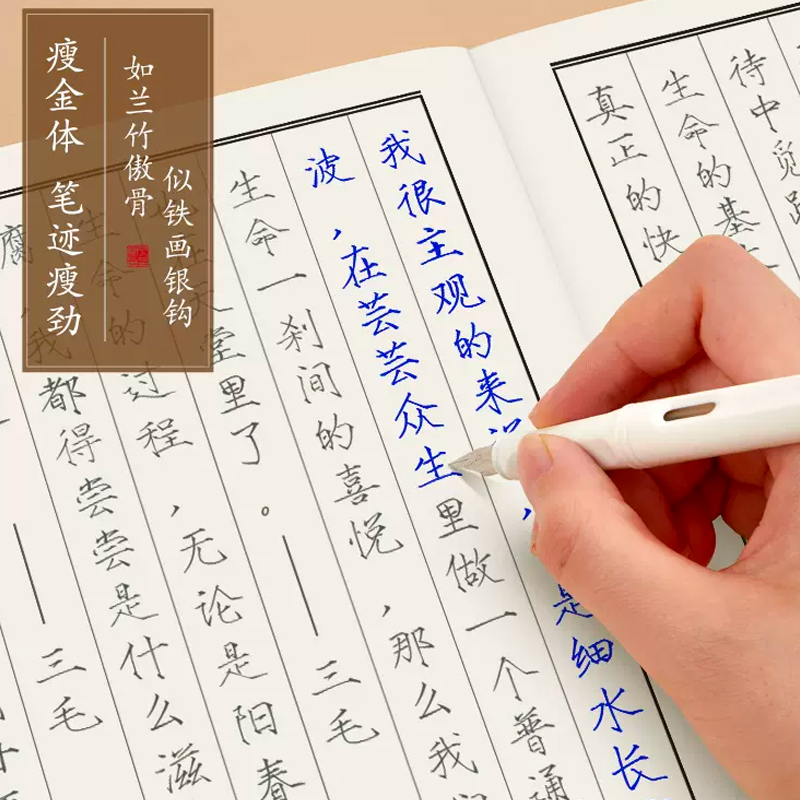 瘦金体 笔迹瘦劲
如兰竹傲骨
似铁画银钩
待中觅
生命的基
真正的快
我很主观的来说，是细水长
波，在芸芸众生里做一个普通
生命一刹间的喜悦，那么我们
在天堂里了。——三毛
生命的过程，无论是阳春
腐，我都得尝尝是什么滋
——三毛